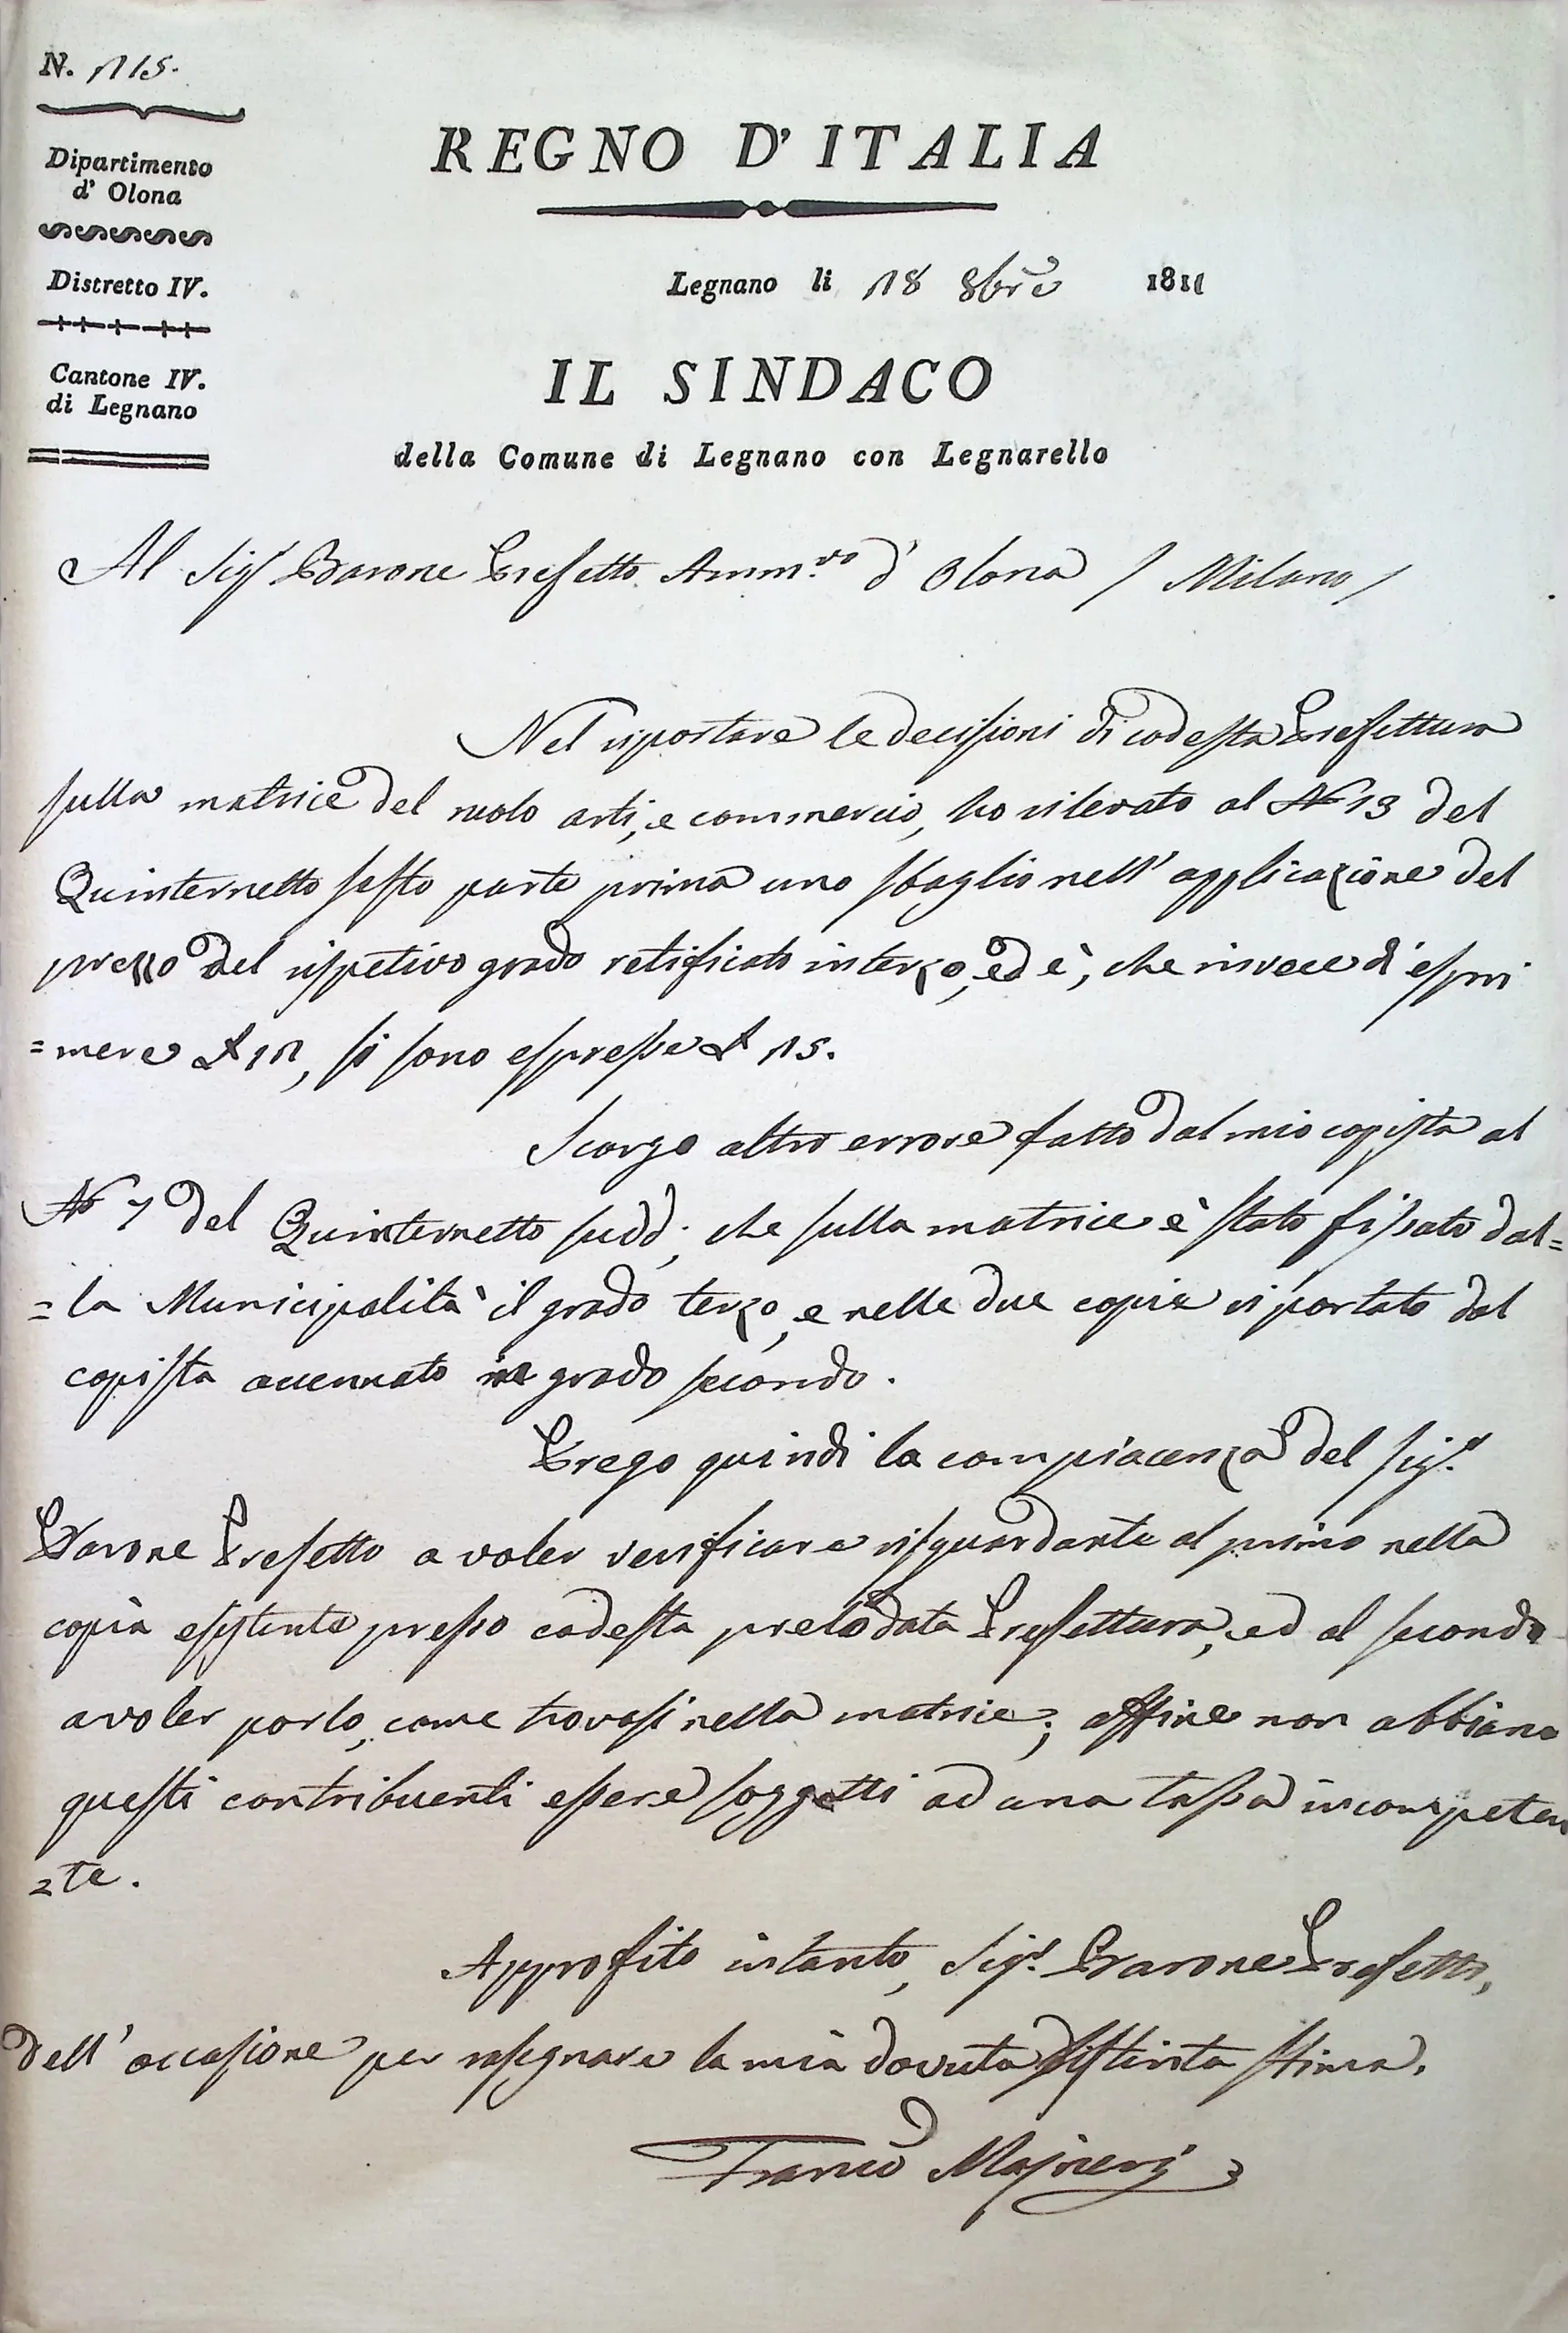 N. 1115.
Dipartimento
d' Olona
Distretto IV.
Cantone IV.
di Legnano
REGNO D'ITALIA
Legnano li 18 8bre 1811
IL SINDACO
della Comune di Legnano con Legnarello
Al Sigr Barone Prefetto Amm.vo d' Olona / Milano /
Nel riportare le decisioni di codesta Prefettura
sulla matrice del ruolo arti, e commercio, ho rilevato al No 13 del
Quinternetto sesto parte prima uno sbaglio nell' applicazione del
prezzo del rispetivo grado retificato in terzo, ed è, che invece di espri
=mere £ 10, si sono espresse £ 15.
Scorgo altro errore fatto dal mio copista al
No 7 del Quinternetto sudd.; che sulla matrice è stato fissato dal=
=la Municipalità il grado terzo, e nelle due copie riportato dal
copista accennato in grado secondo.
Prego quindi la compiacenza del Sigr.
Barone Prefetto a voler verificare risguardante al primo nella
copia esistente presso codesta prelodata Prefettura, ed al secondo
a voler porlo, come trovasi nella matrice; affine non abbiano
questi contribuenti essere soggetti ad una tassa incompeten
=te.
Approfito intanto, Sigr. Barone Prefetto,
dell' occasione per rasegnare la mia dovuta distinta stima.
Franco